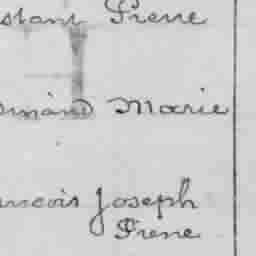 stant Prene
ormand Marie
ancois Joseph
Prene